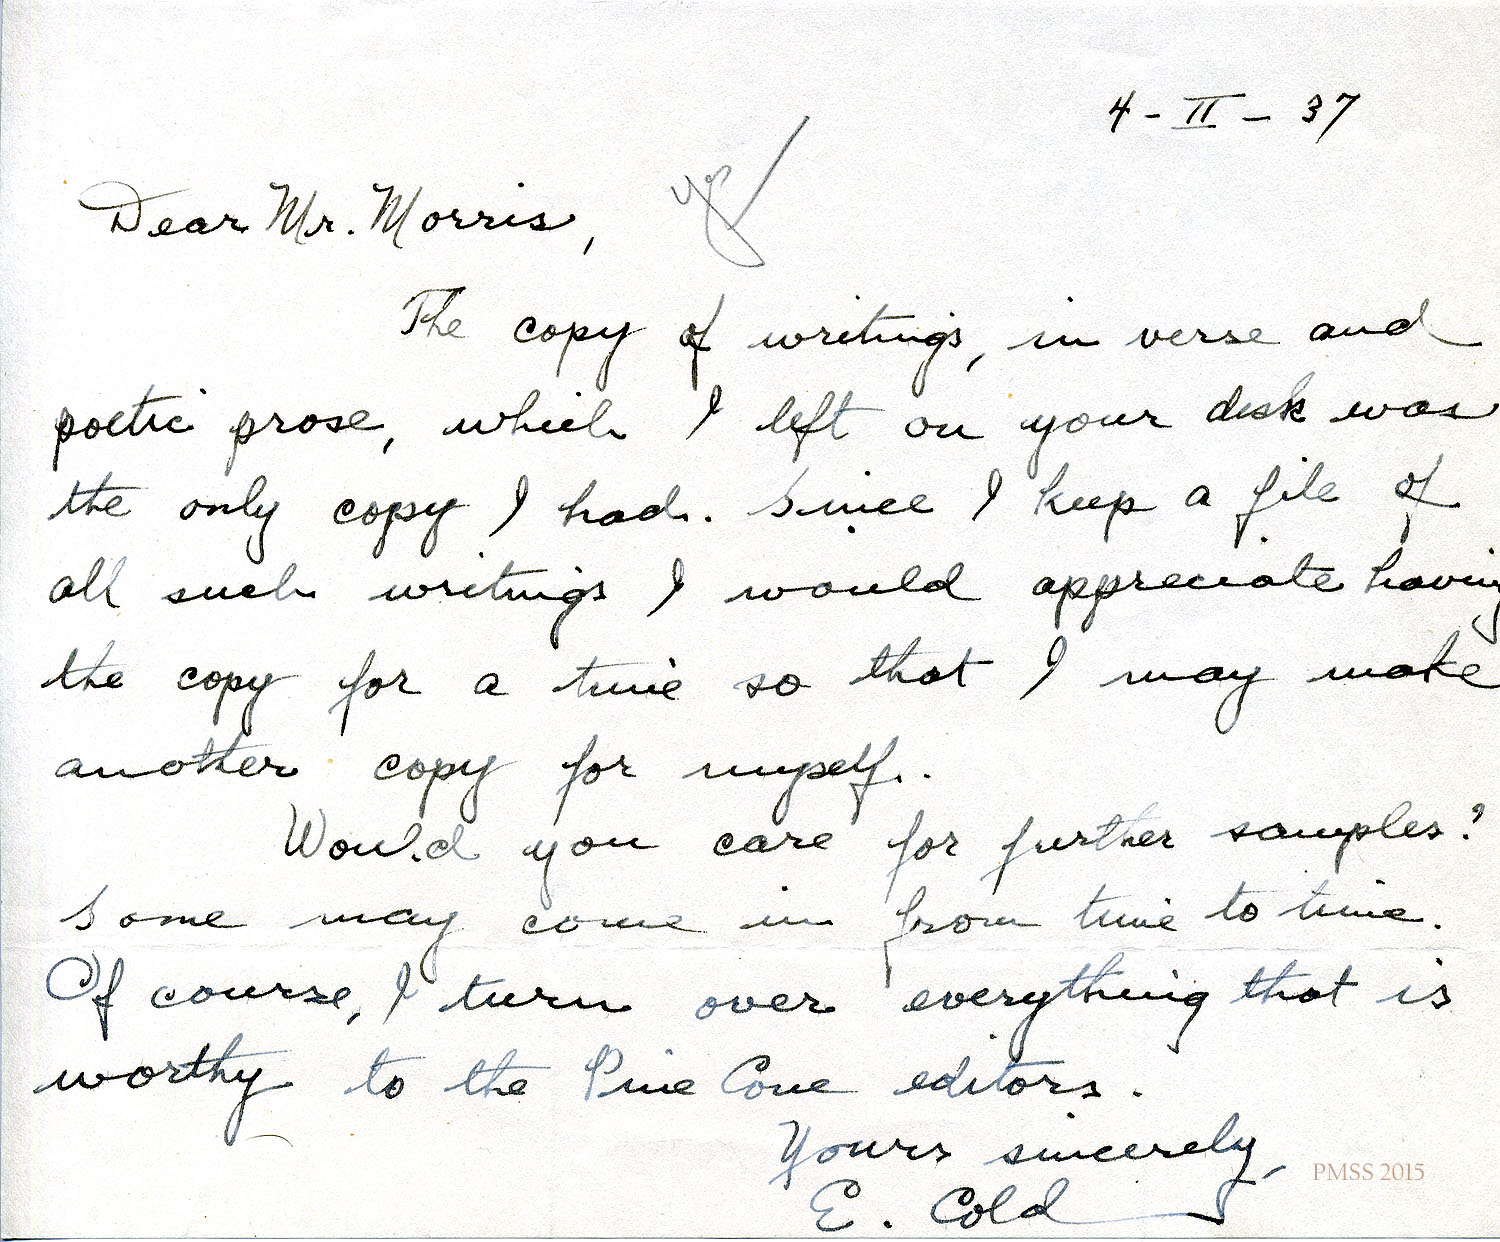 4 - II - 37
Dear Mr. Morris,
The copy of writings, in verse and
poetic prose, which I left on your desk was
the only copy I had. Since I keep a file of
all such writings I would appreciate having
the copy for a time so that I may make
another copy for myself.
Would you care for further samples?
Some may come in from time to time.
Of course, I turn over everything that is
worthy to the Pine Cone editors.
Yours sincerely,
E. Cold
PMSS 2015